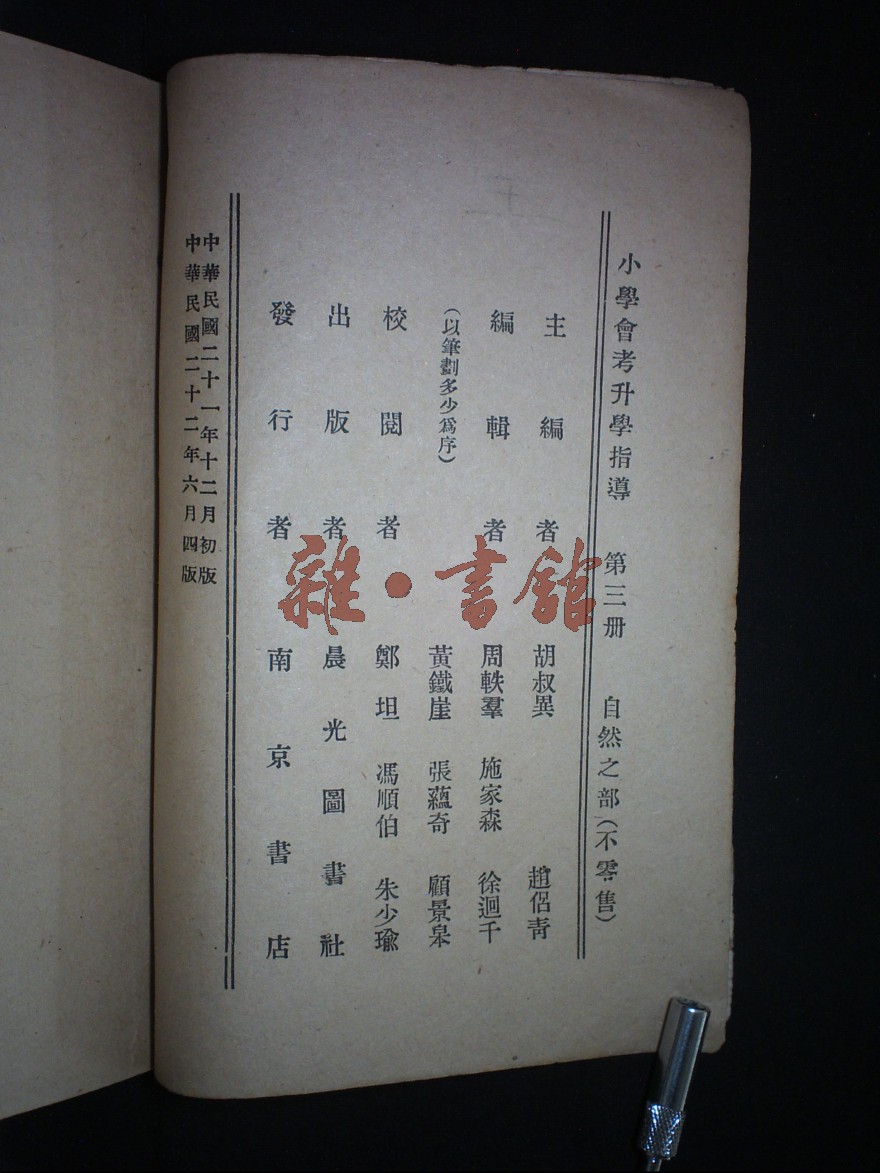 小學會考升學指導 第三册 自然之部(不零售)
主編者 胡叔異 趙侶青
編輯者 周軼羣 施家森 徐迴千
(以筆劃多少爲序) 黃鐵崖 張蘊奇 顧景皋
校閱者 鄭坦 馮順伯 朱少瑜
出版者 晨光圖書社
發行者 南京書店
中華民國二十一年十二月初版
中華民國二十二年六月四版
雜·書館